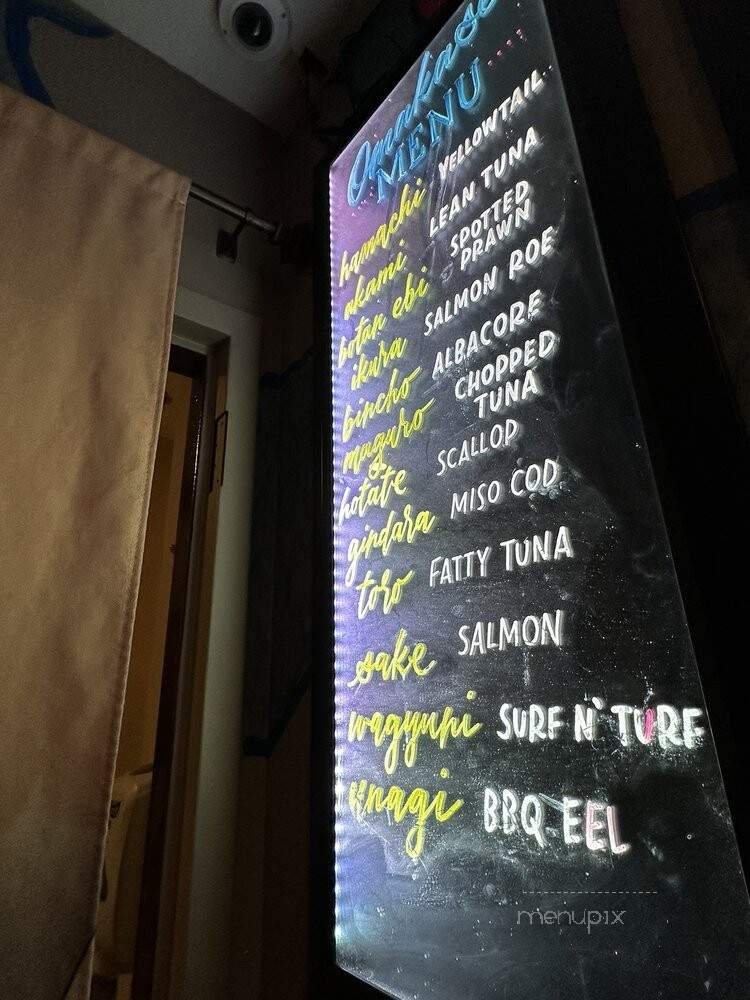 Omakase
MENU
hamachi YELLOWTAIL
akami LEAN TUNA
botan ebi SPOTTED
PRAWN
ikura SALMON ROE
bincho ALBACORE
maguro CHOPPED
TUNA
hotate SCALLOP
gindara MISO COD
toro FATTY TUNA
sake SALMON
wagyuni SURF N' TURF
unagi BBQ EEL
menupix